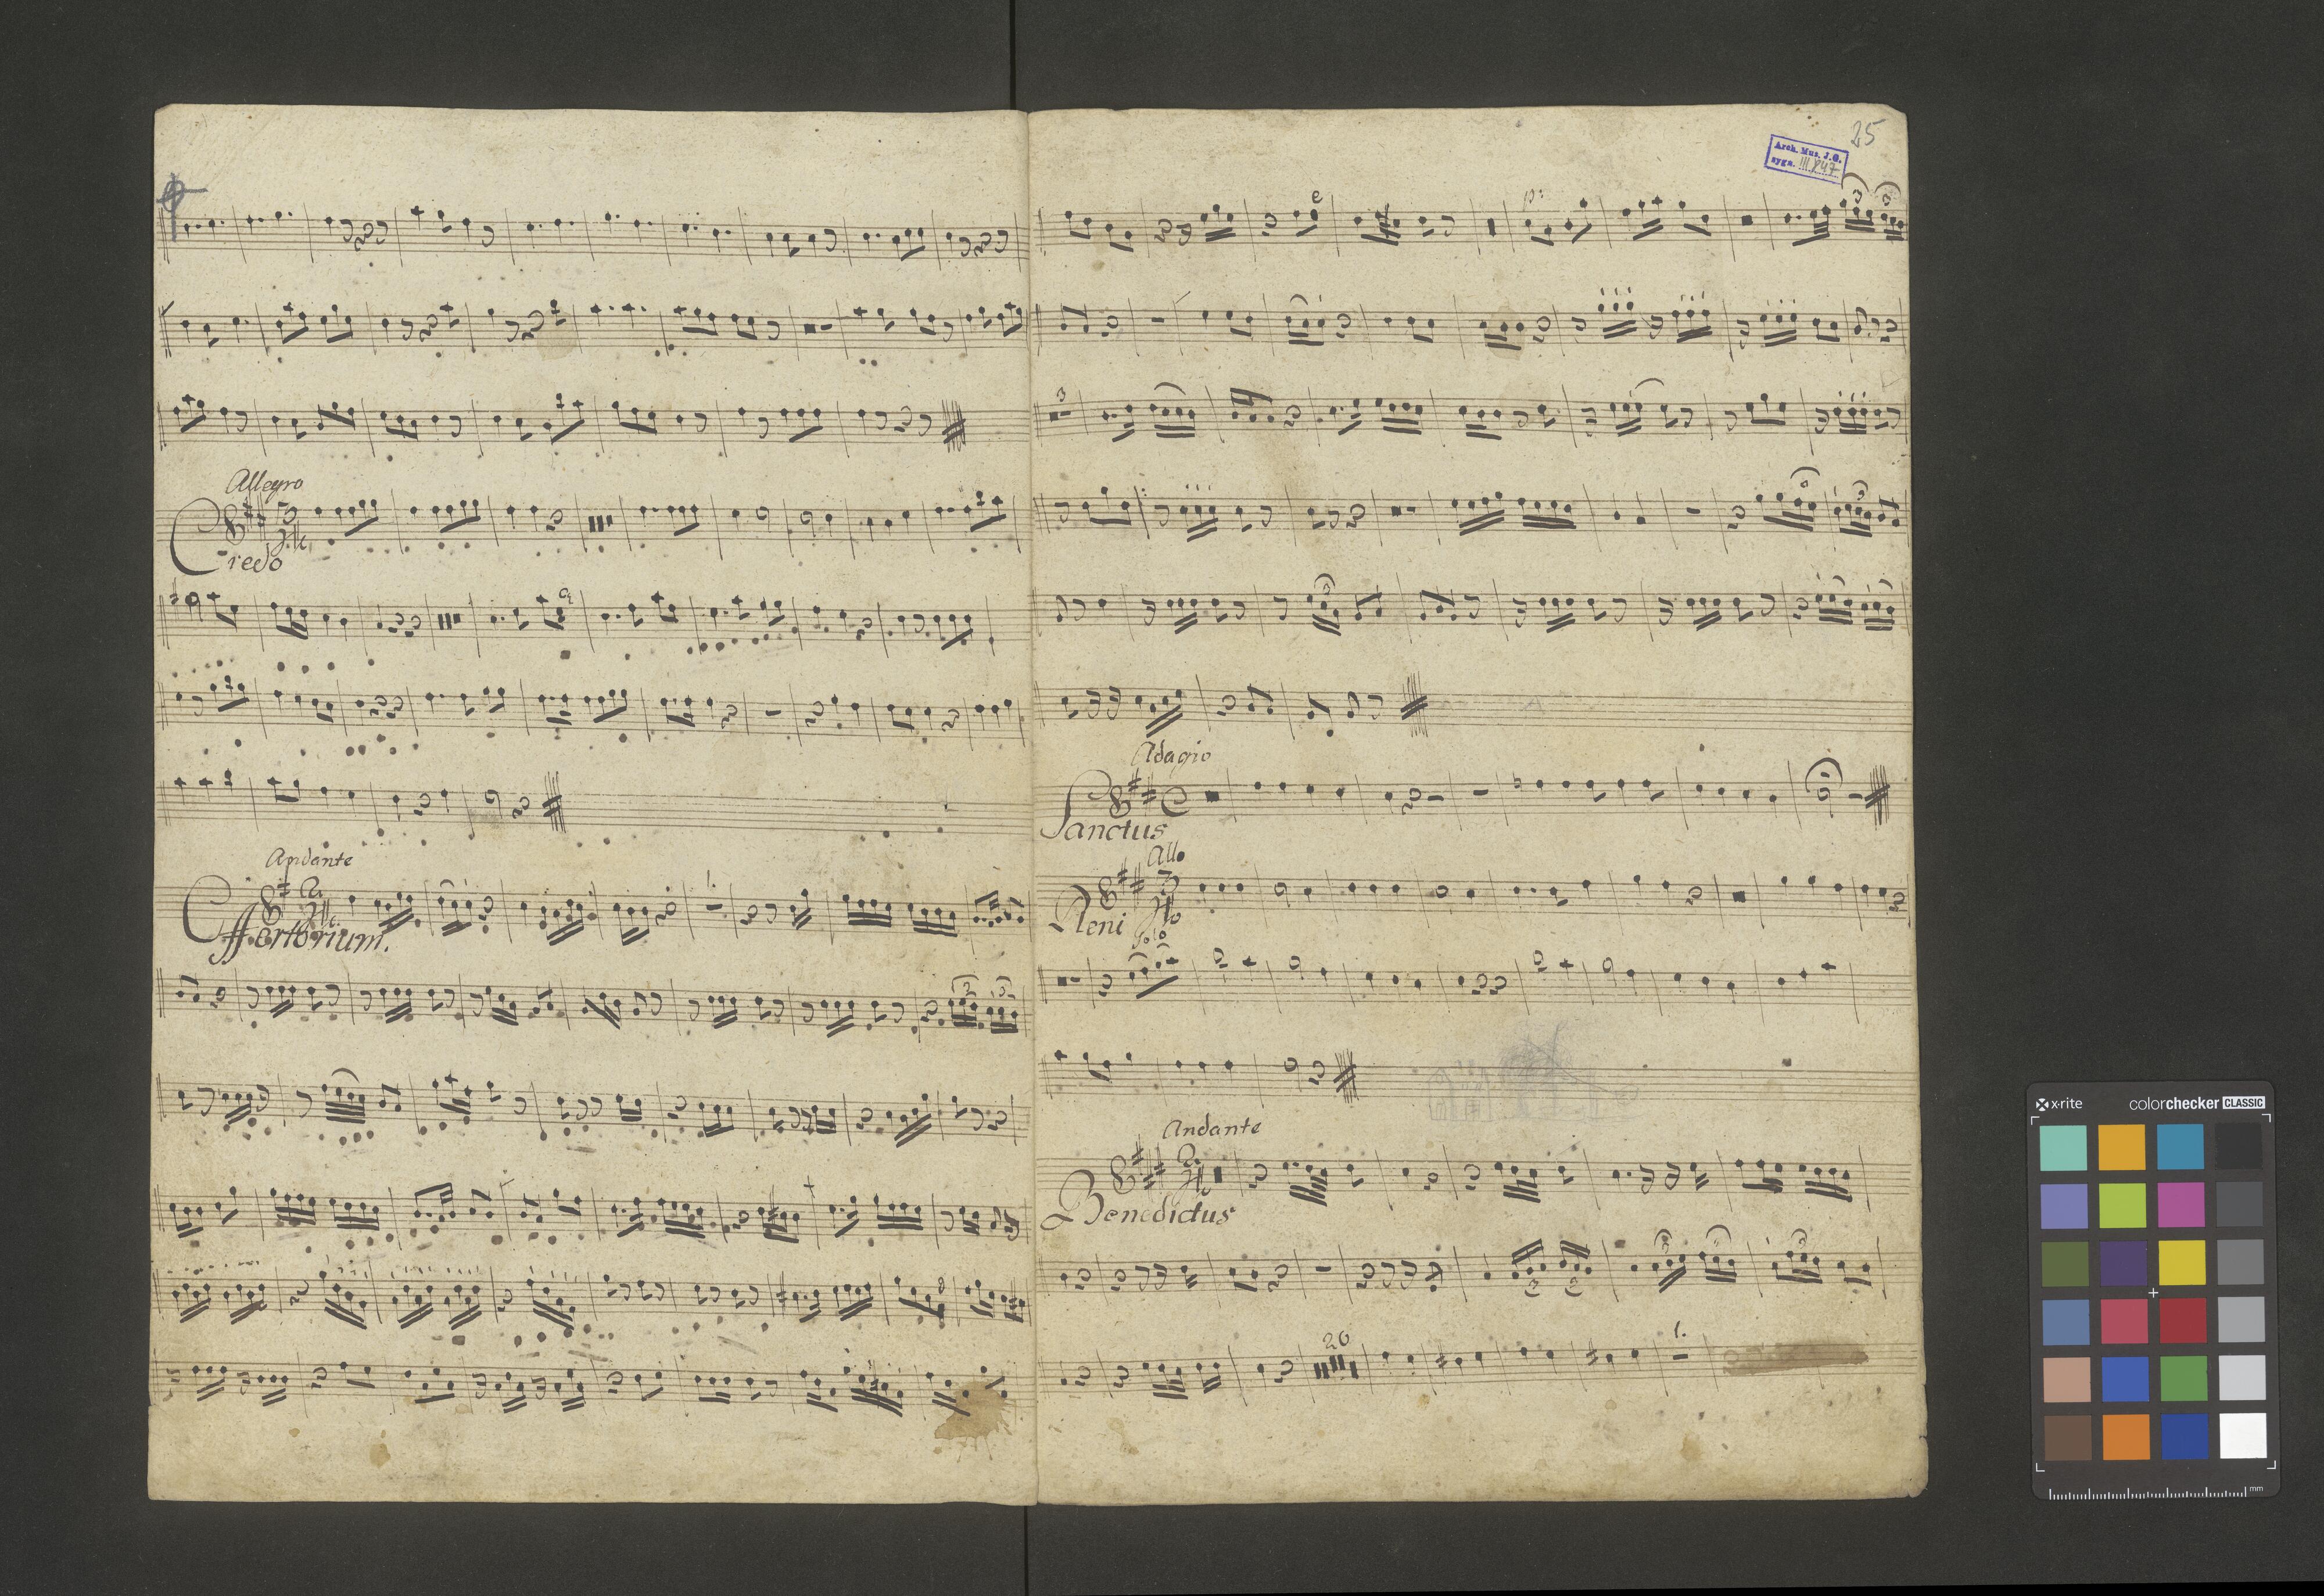 Allegro
Credo
Andante
Offertorium.
25
Arch. Mus. J.G.
sygn. III 847
p:
e
Adagio
Sanctus
Allo
Pleni
Solo
Andante
Benedictus
20
1.
x·rite colorchecker CLASSIC
mm